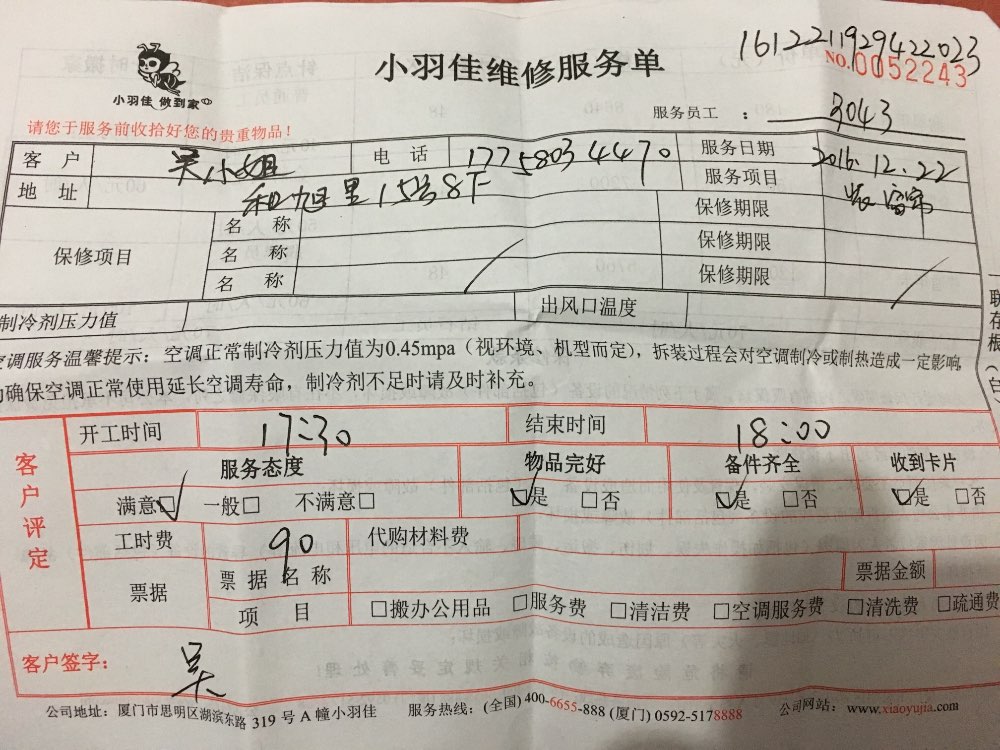 1612211929422023
小羽佳维修服务单
NO.0052243
小羽佳 做到家
服务员工 : 3043
请您于服务前收拾好您的贵重物品!
客 户 吴小姐 电 话 17758034470 服务日期 2016.12.22
地 址 和旭里15号8下 服务项目 装窗帘
保修项目 名 称 保修期限
名 称 保修期限
名 称 保修期限
制冷剂压力值 出风口温度
空调服务温馨提示：空调正常制冷剂压力值为0.45mpa（视环境、机型而定），拆装过程会对空调制冷或制热造成一定影响,
为确保空调正常使用延长空调寿命，制冷剂不足时请及时补充。
联存根（白）
客户评定
开工时间 17:30 结束时间 18:00
服务态度 物品完好 备件齐全 收到卡片
满意☑ 一般□ 不满意□ ☑是 □否 ☑是 □否 ☑是 □否
工时费 90 代购材料费
票据 票 据 名 称 票据金额
项 目 □搬办公用品 □服务费 □清洁费 □空调服务费 □清洗费 □疏通费
客户签字: 吴
公司地址：厦门市思明区湖滨东路 319 号 A 幢小羽佳 服务热线：(全国) 400-6655-888 (厦门) 0592-5178888 公司网站：www.xiaoyujia.com